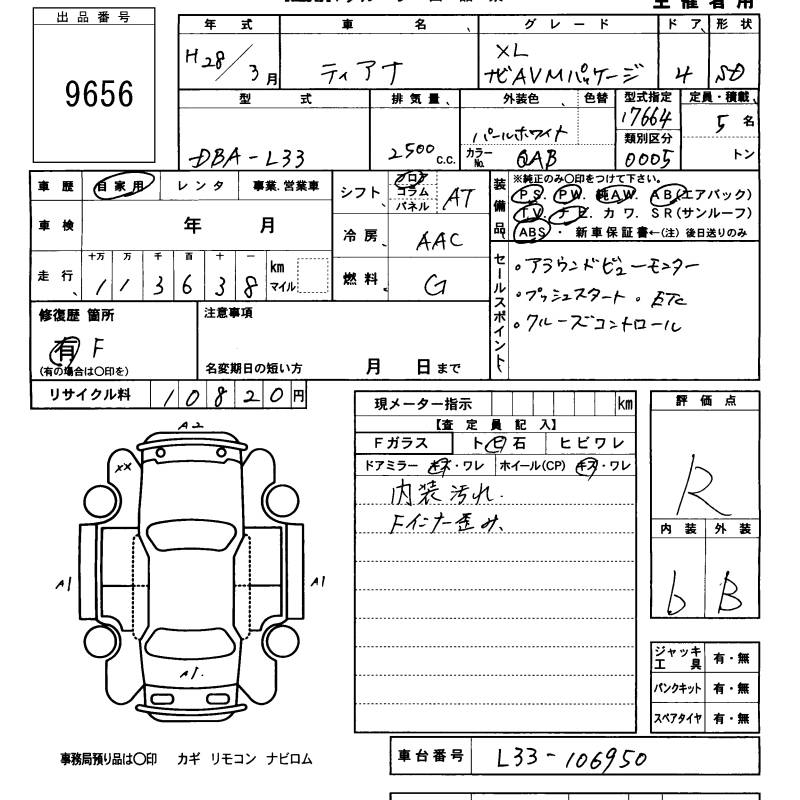 主催者用
出品番号
9656
年式 車名 グレード ドア 形状
H28/3月 ティアナ XL ナビAVMパッケージ 4 SD
型式 排気量 外装色 色替 型式指定 定員・積載
DBA-L33 2500 c.c. パールホワイト 17664 5名
カラーNo. QAB 類別区分 0005 トン
車歴 自家用 レンタ 事業.営業車
車検 年 月
走行 十万 万 千 百 十 一
1 1 3 6 3 8 km マイル
シフト フロア コラム パネル AT
冷房 AAC
燃料 G
装備品 ※純正のみ〇印をつけて下さい。
PS. PW. 純AW. AB(エアバック)
TV. ナビ. カワ. SR(サンルーフ)
ABS・新車保証書←(注)後日送りのみ
セールスポイント
・アラウンドビューモニター
・プッシュスタート ・ETC
・クルーズコントロール
修復歴 箇所
有 F
(有の場合は〇印を)
注意事項
名変期日の短い方 月 日まで
リサイクル料 10820円
現メーター指示 km
【査定員記入】
Fガラス ト ビ 石 ヒビワレ
ドアミラー キズ・ワレ ホイール(CP) キズ・ワレ
内装汚れ.
Fインナー歪み、
評価点
R
内装 外装
b B
A2
XX
A1 A1
A1.
ジャッキ工具 有・無
パンクキット 有・無
スペアタイヤ 有・無
事務局預り品は〇印 カギ リモコン ナビロム
車台番号 L33-106950